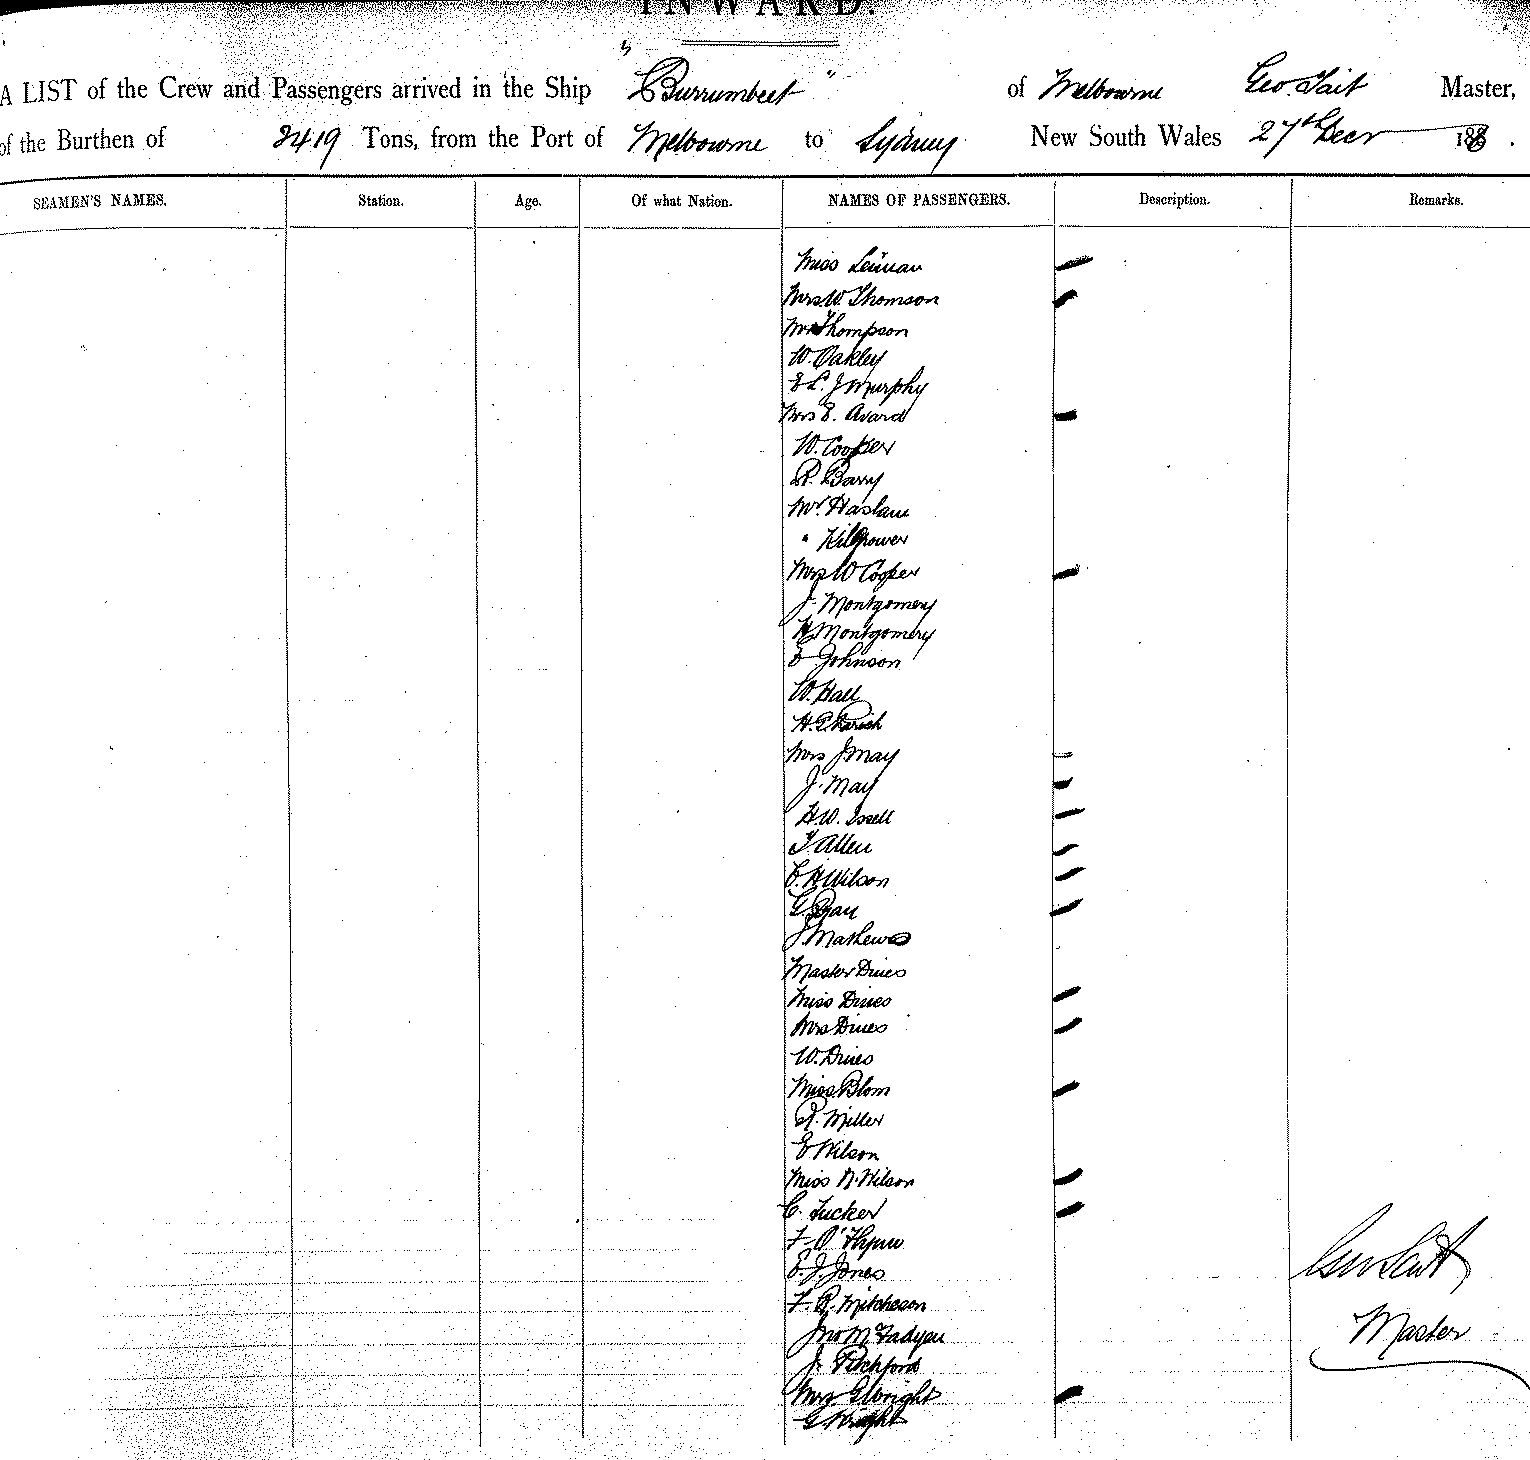 INWARD.
A LIST of the Crew and Passengers arrived in the Ship "Burrumbeet" of Melbourne Geo. Tait Master,
of the Burthen of 2419 Tons, from the Port of Melbourne to Sydney New South Wales 27th Decr 188
SEAMEN'S NAMES. Station. Age. Of what Nation. NAMES OF PASSENGERS. Description. Remarks.
Miss
Mrs W. Thomson
Thompson
W. Oakley
E L. J Murphy
Mrs E. Avard
W. Cooper
R. Barry
Mr. Haslam
"
Mrs W Cooper
J. Montgomery
H Montgomery
E Johnson
W. Hall
H. Parish
Mrs J May
J. May
H. W. Issell
T. Allen
C. H Wilson
G.
J Mathews
Master Dines
Miss Dines
Mrs Dines
W. Dines
Miss Blom
R. Miller
E Wilson
Miss N. Wilson
C. Tucker
F. O'Flynn
E. J. Jones
F. R. Mitcheson
Jno McFadyen
J. Pitchford
Mrs G Wright
G Wright
Geo Tait
Master